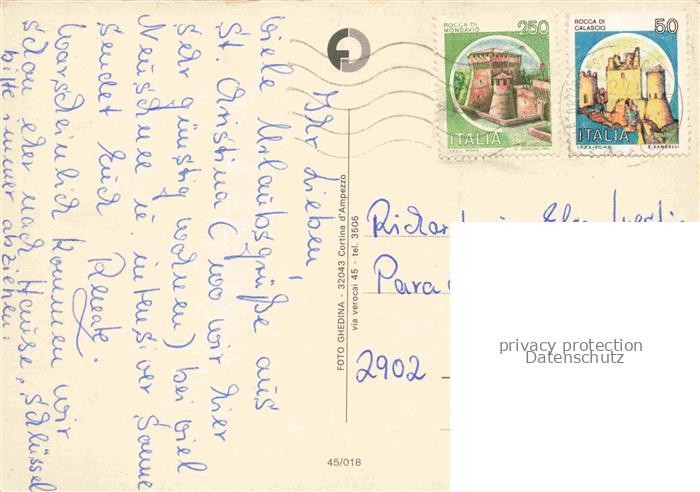 Ihr Lieben,
viele Urlaubsgrüße aus
St. Christina (wo wir hier
sehr günstig wohnen) bei viel
Neuschnee u. intensiver Sonne
sendet Euch
Renate.
Warscheinlich kommen wir
schon eher nach Hause, Schlüssel
bitte immer abziehen!
ROCCA DI
MONDAVIO
250
ITALIA
I.P.Z.S. ROMA
ROCCA DI
CALASCIO
50
ITALIA
I.P.Z.S. ROMA E. VANGELLI
FOTO GHEDINA - 32043 Cortina d'Ampezzo
via verocai 45 - tel. 3505
Para
2902
45/018
privacy protection
Datenschutz